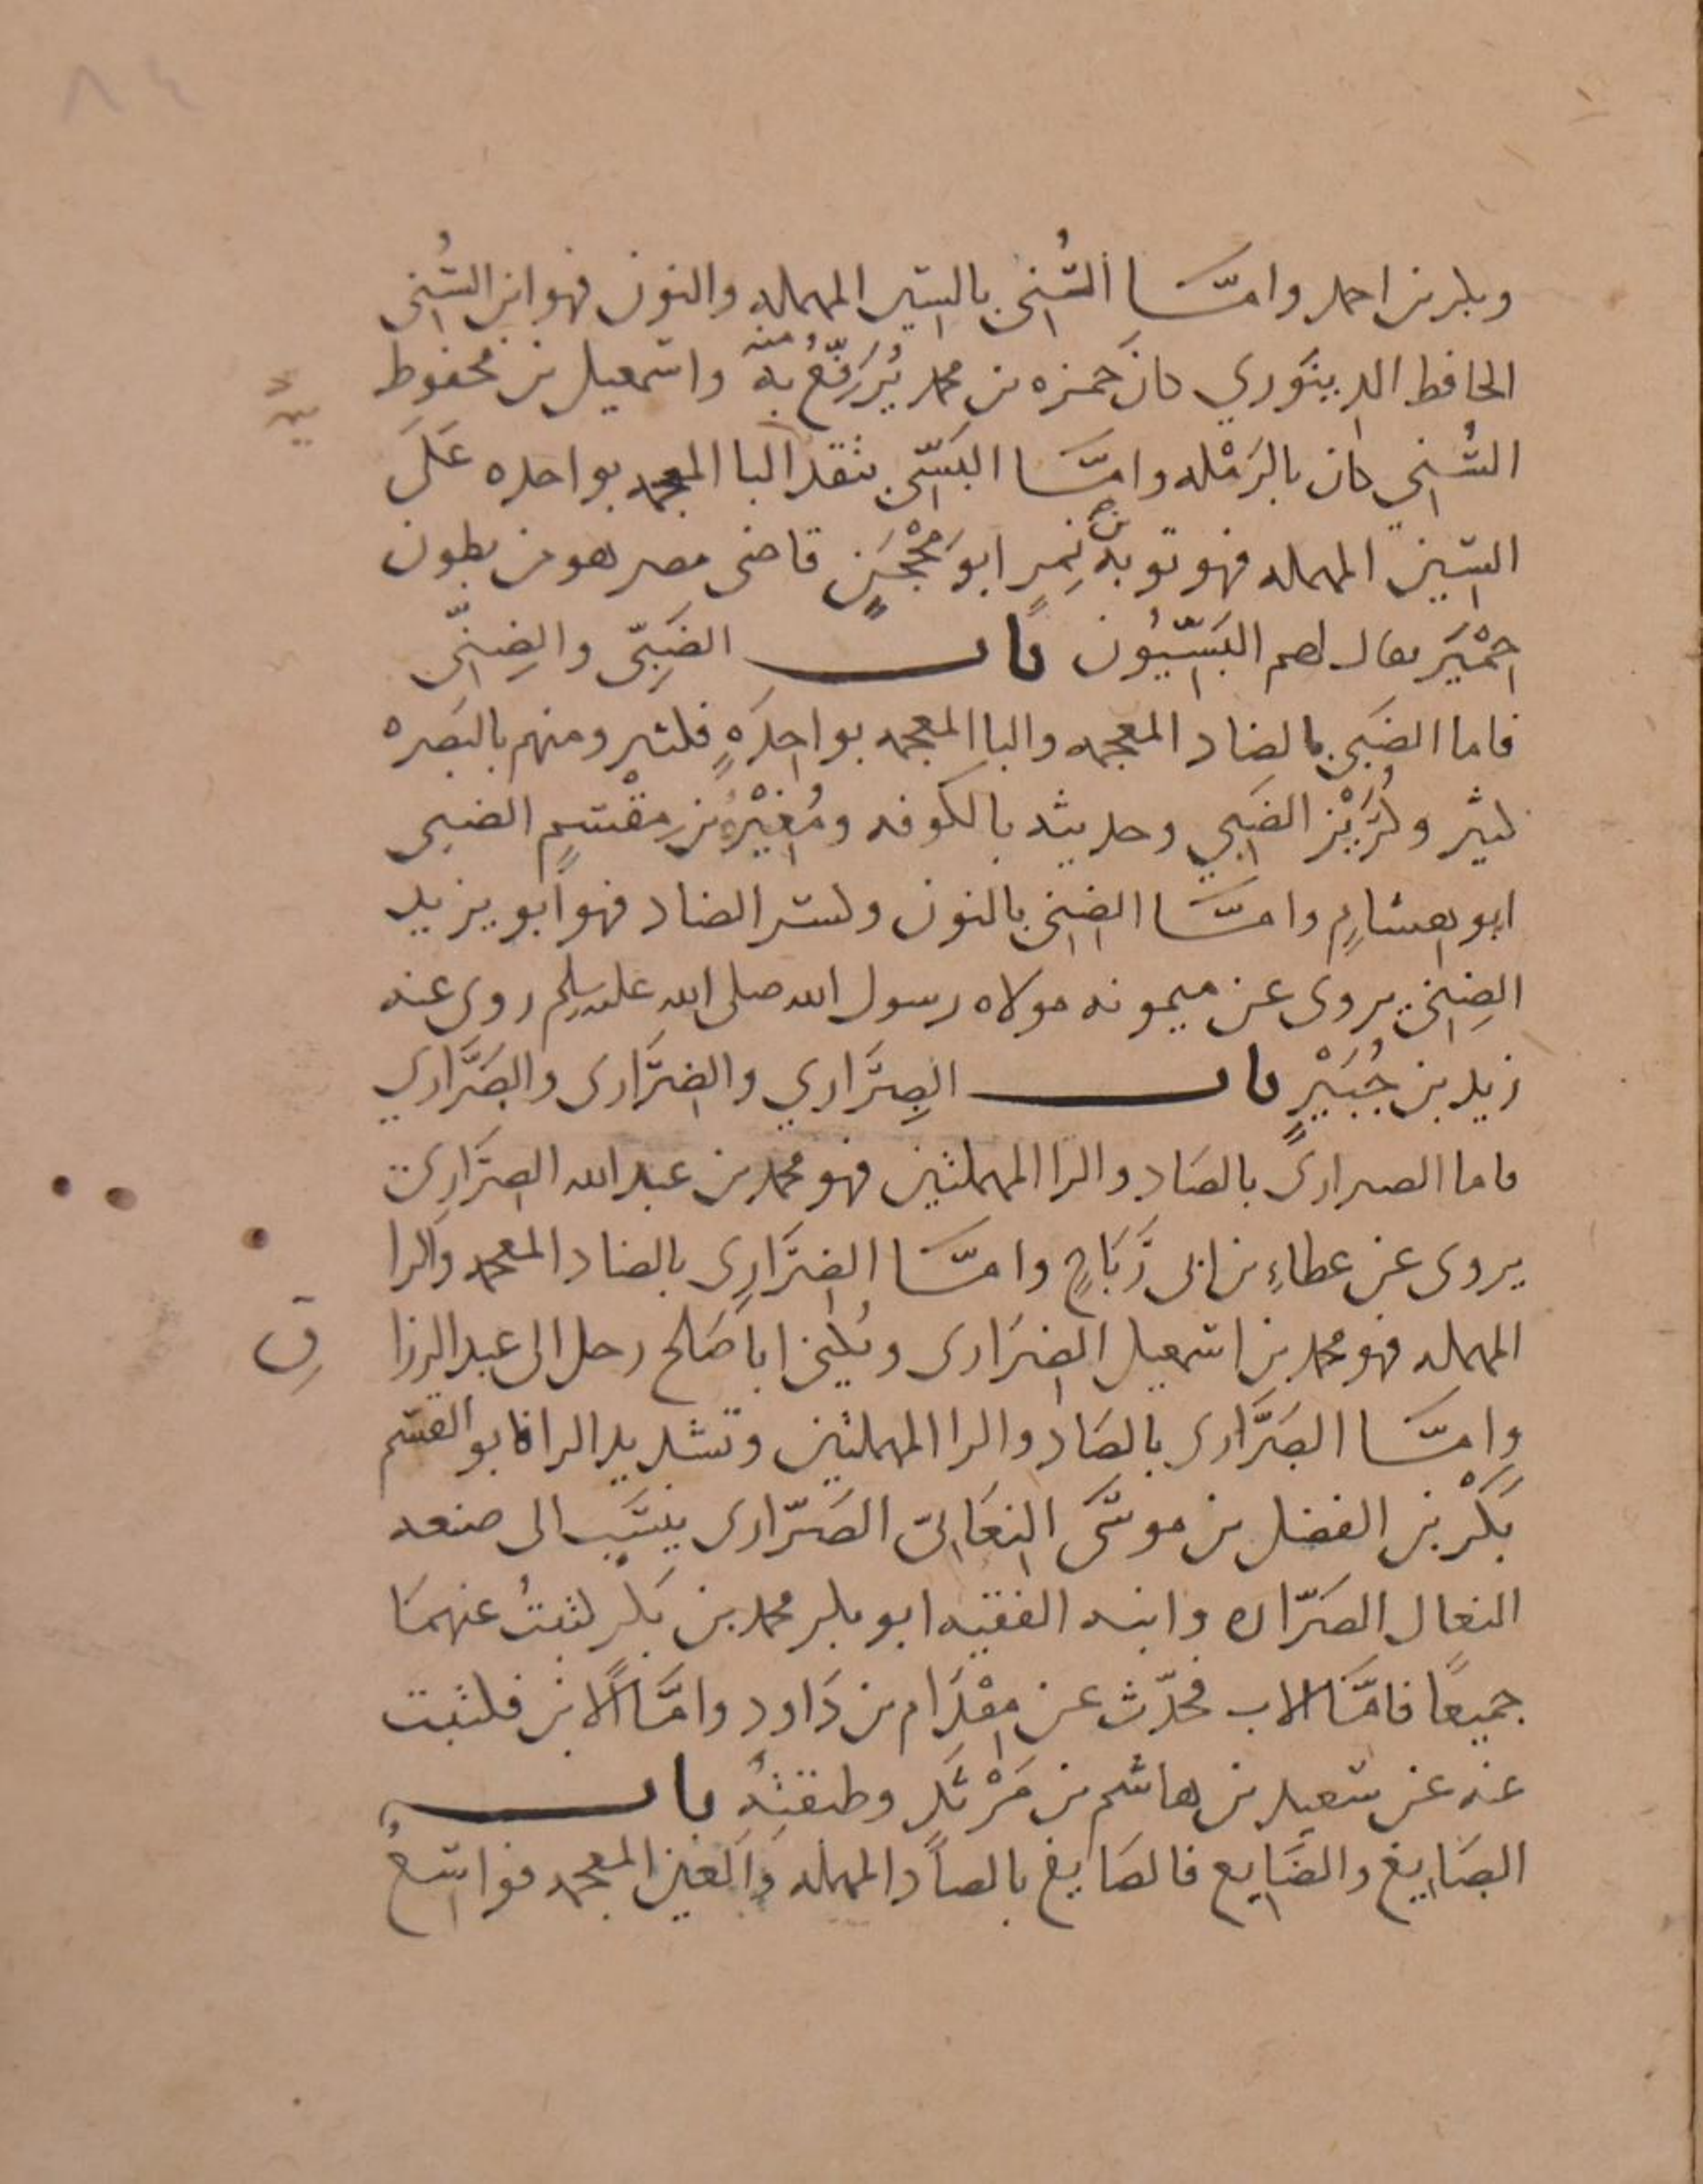 ٨٤
وبكر بن احمد وامّا السُّنى بالسين المهمله والنون فهو ابن السُّنى
الحافظ الدينوري كان حمزه بن محمد يُرَفِّعُ به واسمعيل بن محفوظ
السُّني كان بالرَمْله وامّا البَسّى بنقد البا المعجمه بواحده عَلَى
السين المهمله فهو توبه بن نمِرٍ ابو مِحْجَنٍ قاضى مصر هو من بطون
حِمْيَر يقال لهم البَسّيُّون باب الضَبِّى والضِنّى
فاما الضَبى بالضاد المعجمه والبا المعجمه بواحِدَهٍ فكثير ومنهم بالبَصره
كثير وكُرَيْز الضَبي وحديثه بالكوفه ومُغِيْرهُ بن مِقْسَمٍ الضبى
ابو هِشامٍ وامّا الضِنى بالنون وكسر الضاد فهو ابو يزيد
الضِنى يروى عن ميمونه مولاه رسول الله صلى الله عليه وسلم روى عنه
زيد بن جُبَيْرٍ باب الصِرَاري والضِرَارى والصَرَّاري
فاما الصرارى بالصَاد والرا المهملتين فهو محمد بن عبد الله الصِرَارى
يروى عن عطاءِ بن ابى رَبَاحٍ وامّا الضِرَارِى بالضاد المعجمه والرا
المهمله فهو محمد بن اسمعيل الضِرَارى ويُكنى ابا صَلح رحل الى عبد الرزا
ق
وامّا الصَرَّارى بالصَاد والرا المهملتين وتشديد الرا فابو القسم
بَكْر بن الفضل بن موسَى النِعَالى الصَرّارى ينسَب الى صنعه
النعال الصَرّاره وابنه الفقيه ابو بكر محمد بن بَكر كتبتُ عنهمَا
جميعًا فامَّا الاب فحدّث عن مِقْدَام بن دَاود وامَّا الابن فكتبت
عنه عن سَعيد بن هاشم بن مَرْثَد وطبقتِهِ باب
الصَايغ والضَايع فالصَايغ بالصاد المهمله والغين المعجمه فواسعُ